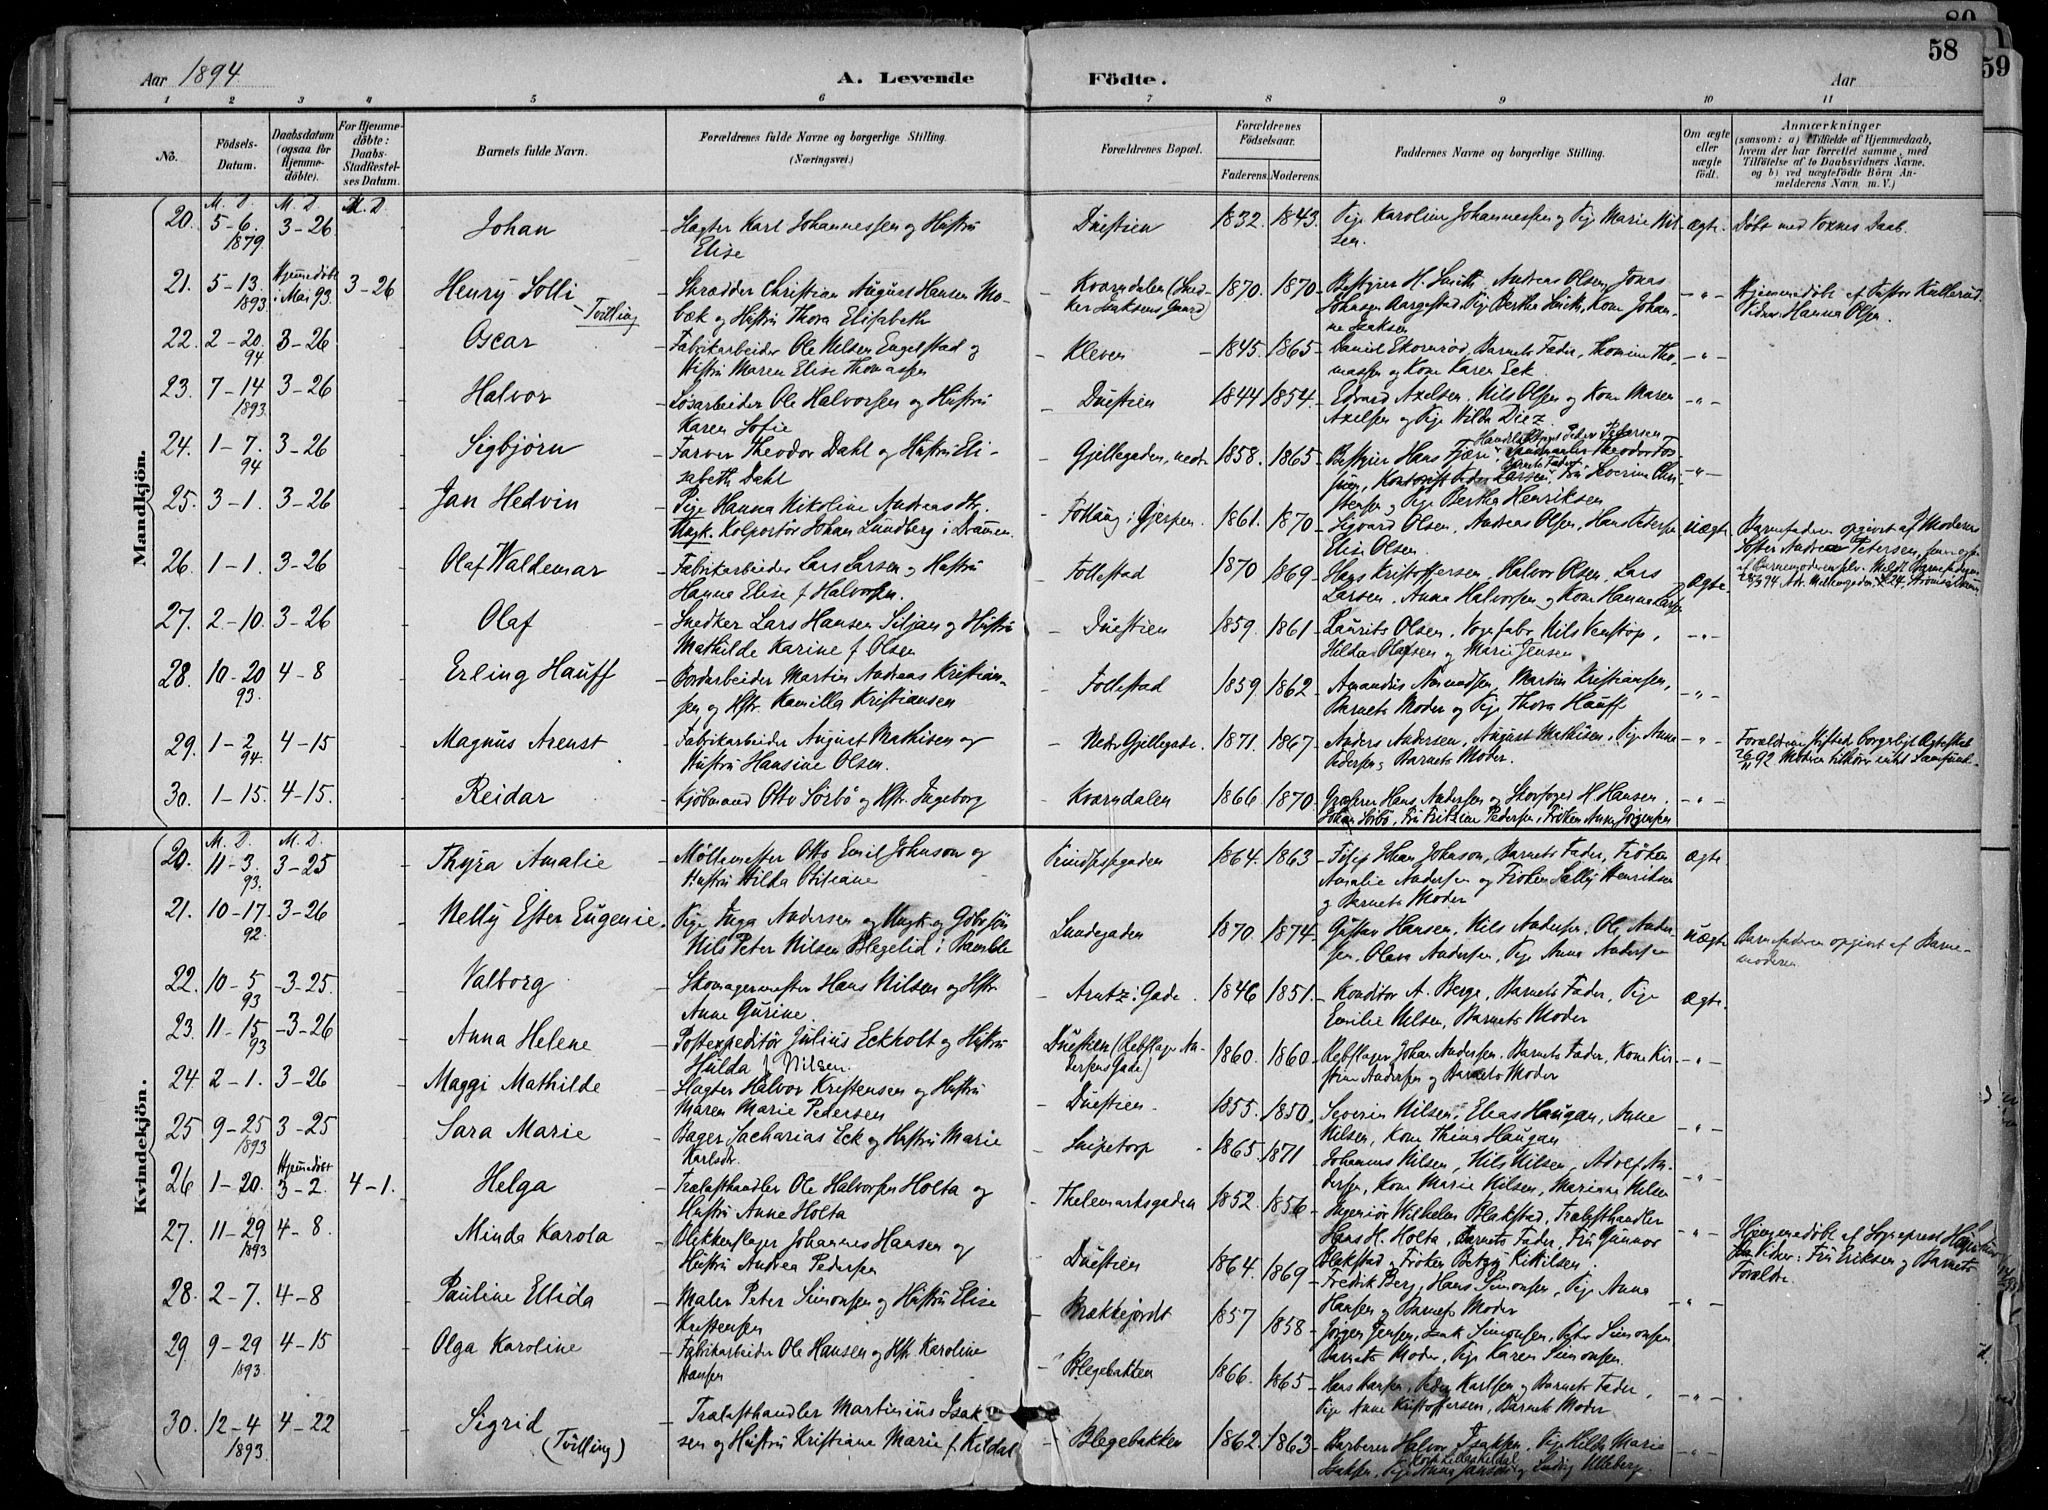 80
58
59
Aar 1894
A. Levende Födte.
Aar
1 2 3 4 5 6 7 8 9 10 11
No.
Födsels-Datum.
Daabsdatum (ogsaa for Hjemme-döbte).
For Hjemme-döbte: Daabs-Stadfæstel-ses Datum.
Barnets fulde Navn.
Forældrenes fulde Navne og borgerlige Stilling. (Næringsvei.)
Forældrenes Bopæl.
Forældrenes Födselsaar.
Faderens. Moderens.
Faddernes Navne og borgerlige Stilling.
Om ægte eller uægte födt.
Anmærkninger
(saasom: a) i Tilfælde af Hjemmedaab, hvem der har forrettet samme, med Tilföielse af to Daabsvidners Navne, og b) ved uægtefödte Börn Anmelderens Navn m. V.)
Mandkjön.
M. D. M. D. M. D.
20. 5-6. 1879. 3-26 Johan Slagter Karl Johannessen og Hustru Elise Duestien 1832. 1843. Pige Karoline Johannessen og Pige Marie Nilsen. ægte. Døbt med Voxnes Daab.
21. 5-13. 1893. Hjemmedøbt i Mai 93. 3-26 Henry Solli Tvilling Skrædder Christian August Hansen Mobæk og Hustru Thora Elisabeth Kværndalen (Snedker Isaksens Gaard) 1870. 1870 Bestyrer H. Smith, Andreas Olsen, Jonas Johansen Aargestad, Pige Bertha Smith, Kone Johanne Isaksen -"- Hjemmedøbt af Pastor Kullerud. Vidner: Hanna Olsen.
22. 2-20. 94 3-26 Oscar Fabrikarbeider Ole Nilsen Engelstad og Hustru Maren Elise Thomassen Kleven 1845. 1865. Daniel Ekornrød, Barnets Fader, Thomine Thomassen og Kone Karen Eck. -"-
23. 7-14 1893. 3-26 Halvor Løsarbeider Ole Halvorsen og Hustru Karen Sofie Duestien 1844 1854. Edvard Axelsen. Nils Olsen og Kone Maren Axelsen og Pige Hilda Diez. -"-
24. 1-7. 94 3-26 Sigbjørn Farver Theodor Dahl og Hustru Elisabeth Dahl Gjellegaden, nedr. 1858. 1865. Bestyrer Hans Fjære, Barnets Fader, Pige Bertha Henriksen -"-
25. 3-1. 3-26 Jan Hedvin Pige Hanna Nikoline Andreasdtr. Ungk. Kolportør Johan Lundberg i Drammen. i Gjerpen. 1861. 1870 Sigvard Olsen, Andreas Olsen, Hans Petersen Elise Olsen. uægte Barnefaderen opgivet af Moderens Søster Andrea Petersen,
26. 1-1. 3-26 Olaf Waldemar Fabrikarbeider Lars Larsen og Hustru Hanne Elise f. Halvorsen. Follestad 1870 1869 Hans Kristoffersen, Halvor Olsen, Lars Larsen, Anna Halvorsen og Kone Hanna Larsen ægte
27. 2-10. 3-26 Olaf Snedker Lars Hansen Siljan og Hustru Mathilde Karine f. Olsen Duestien 1859. 1861 Laurits Olsen, Nils Venstøp, Hilda Olafsen og Marie Jensen -"-
28. 10-20 93. 4-8 Erling Hauff Bordarbeider Martin Andreas Kristiansen og Hstr. Kamilla Kristiansen Follestad 1859 1862 Amandus Amundsen, Martin Kristiansen, Barnets Moder og Pige Thora Hauff -"-
29. 1-2 94. 4-15 Magnus Arenst Fabrikarbeider August Mathisen og Hustru Hansine Olsen. Nedr Gjellegade. 1871. 1867 Anders Andersen, August Mathisen, Pige Anna Pedersen, Barnets Moder. -"- Forældrene stiftede borgerligt Ægteskab
30. 1-15. 4-15. Reidar Kjøbmand Otto Sørbø og Hstr. Ingeborg Kværndalen 1866 1870. Hans Andersen og Skovfoged H. Hansen. Johan Sørbø, Fru Fritzine Pedersen, Frøken Anna Jørgensen -"-
Kvindekjön.
M. D. M. D.
20. 11-3. 93. 3-25 Thyra Amalie Møllemester Otto Emil Johnson og Hustru Hilda Otiliane Prindsessegaden 1864. 1863 Johan Johnson, Barnets Fader, Frøken Amalie Andersen og Frøken Sally Henriksen og Barnets Moder ægte
21. 10-17. 92. 3-26 Nelly Ester Eugenie. Pige Inga Andersen og Ungk. og Nils Peter Nilsen Blegelid i Bamble Lundegaden 1870. 1874 Gustav Hansen, Nils Andersen, Ole Andersen, Olava Andersen, Pige Anna Andersen uægte Barnefaderen opgivet af Barnemoderen
22. 10-5 93 3-25. Valborg Skomagermester Hans Nilsen og Hstr. Anne Gurine. Arntz: Gade. 1846 1851. Konditor A. Berge, Barnets Fader, Pige Emilie Nilsen, Barnets Moder ægte.
23. 11-15. 93 3-26 Anna Helene Postexpeditør Julius Eckholt og Hustru Hulda f. Nilsen. Duestien (Rebslager Andersens Gade) 1860. 1860. Rebslager Johan Andersen, Barnets Fader, Kone Kirstine Andersen og Barnets Moder -"-
24. 2-1. 3-26 Maggi Mathilde Slagter Halvor Kristensen og Hustru Maren Marie Pedersen Duestien. 1855. 1850. Severin Nilsen, Elias Haugan, Anne Nilsen, Kone Thina Haugan -"-
25 9-25 1893 3-25 Sara Marie Bager Sacharias Eck og Hustru Marie Karlsdtr. Snipetorp 1865. 1871 Johannes Nilsen, Nils Nilsen, Adolf Andersen, Kone Marie Nilsen, Marianne Nilsen -"-
26 1-20. Hjemmedøbt 3-2. 4-1. Helga Trælasthandler Ole Halvorsen Holta og Hustru Anne Holta Thelemarksgaden 1852. 1856 Ingeniør Wilhelm Blakstad, Trælasthandler Hans H. Holta, Barnets Fader, Fru Gunnor Blakstad og Frøken Betzy Kittilsen. -"- Hjemmedøbt af Sogneprest Vidner: Fru Eriksen og Barnets Forældre.
27. 11-29 1893 4-8. Minda Karola Blikkenslager Johannes Hansen og Hustru Andrea Pedersen Duestien 1864. 1869 Fredrik Berg, Hans Simonsen, Pige Anna Hansen og Barnets Moder -"-
28. 2-7. 4-8 Pauline Ellida Maler Peter Simonsen og Hustru Elise Kristensen Brækkejordet 1857 1858 Jørgen Jensen, Isak Simonsen, Peter Simonsen Barnets Moder, Pige Karen Simonsen.
29 9-29 1893. 4-15 Olga Karoline Fabrikarbeider Ole Hansen og Hstr Karoline Hansen Blegebakken 1866. 1865 Hans Karlsen, Peder Karlsen og Barnets Fader, Pige Anne Kristoffersen, Barnets Moder -"-
30. 12-4 1893. 4-22 Sigrid (Tvilling) Trælasthandler Martinius Isaksen og Hustru Kristiane Marie f. Kildal Blegebakken 1862. 1863 Barberer Halvor Isaksen, Pige Hilda Marie Isaksen, Pige Anna Jansen og Ludvig Ulleberg -"-